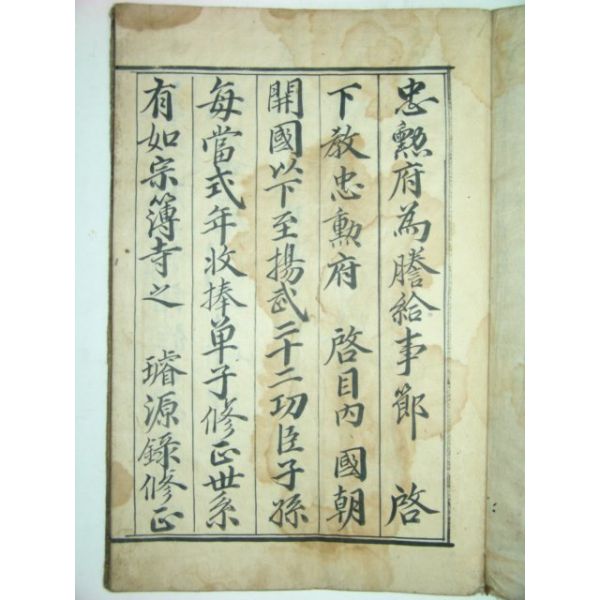 忠勲府為謄給事節 啓
下敎忠勳府 啓目內 國朝
開國以下至揚武二十二功臣子孫
每當式年收捧单子修正世系
有如宗簿寺之 璿源錄修正